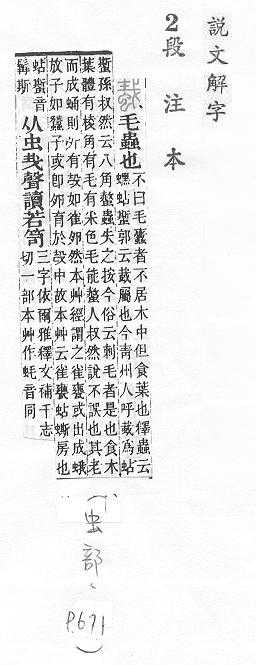 說文解字
2段注本
毛蟲也不曰毛蠹者不居木中但食葉也釋蟲云
蛅蟴郭云蛓屬也今靑州人呼蛓爲蛅
蟴孫叔然云八角螫蟲失之按今俗云刺毛者是也食木
葉體有棱角有毛有采色毛能螫人叔然說不誤也其老
而成蛹則外有殼如雀卵然本艸經謂之雀甕或出成蛾
放子如蠶子或卽卵育於殼中故本艸云雀甕蛅蟴房也
蛅蟴音
髯斯
从虫𢦏聲讀若笥三字依爾雅釋文補千志
切一部本艸作蚝音同
(虫部、
P.671)